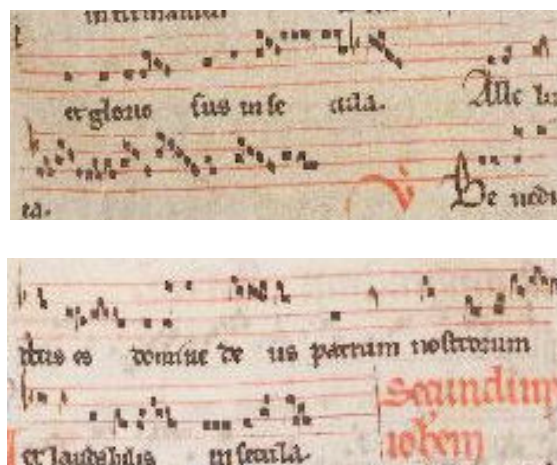 et glorio sus in se cula. Alle lu
ia. V Be nedi
ctus es domine de us patrum nostrorum
et laudabilis in secula. Secundum
iohem